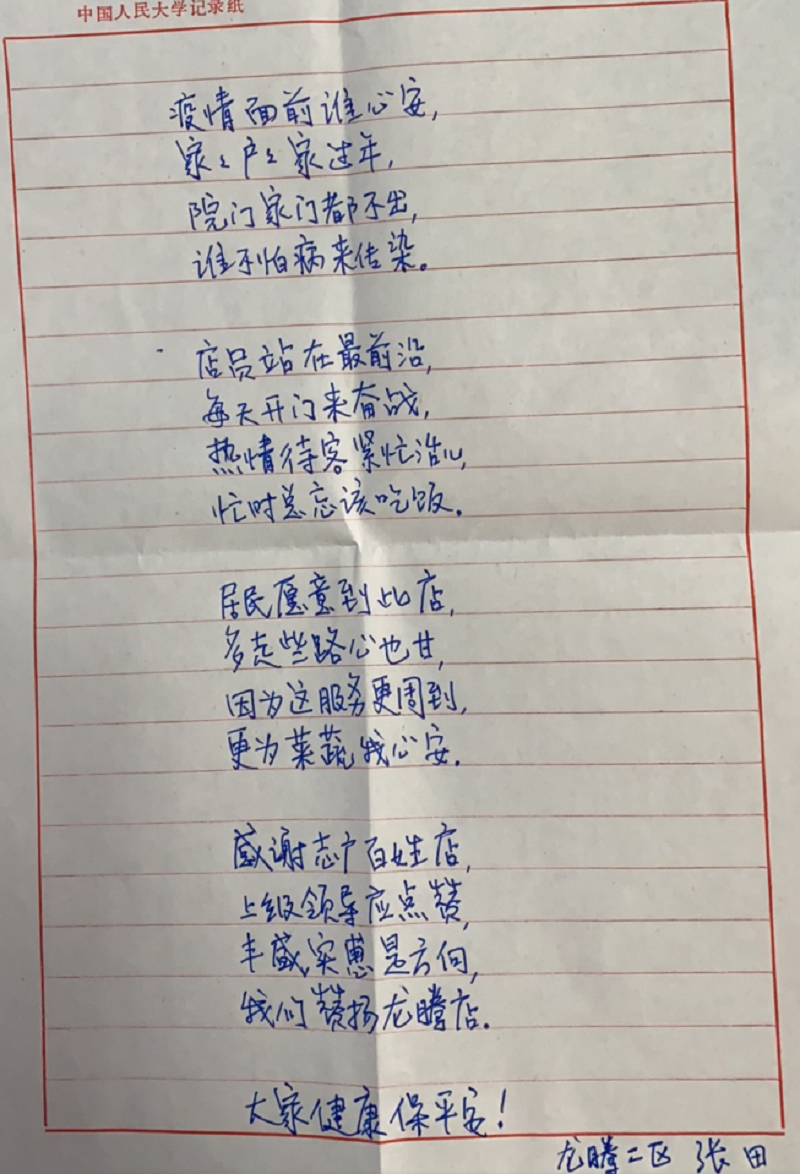 中国人民大学记录纸
疫情面前谁心安,
家々户々家过年,
院门家门都不出,
谁不怕病来传染。
店员站在最前沿,
每天开门来奋战,
热情待客紧忙活儿,
忙时总忘该吃饭.
居民愿意到此店,
多走些路心也甘,
因为这服务更周到,
更为菜蔬我心安.
感谢志广百姓店,
上级领导应点赞,
丰盛实惠是方向,
我们赞扬龙腾店.
大家健康保平安!
龙腾二区 张田